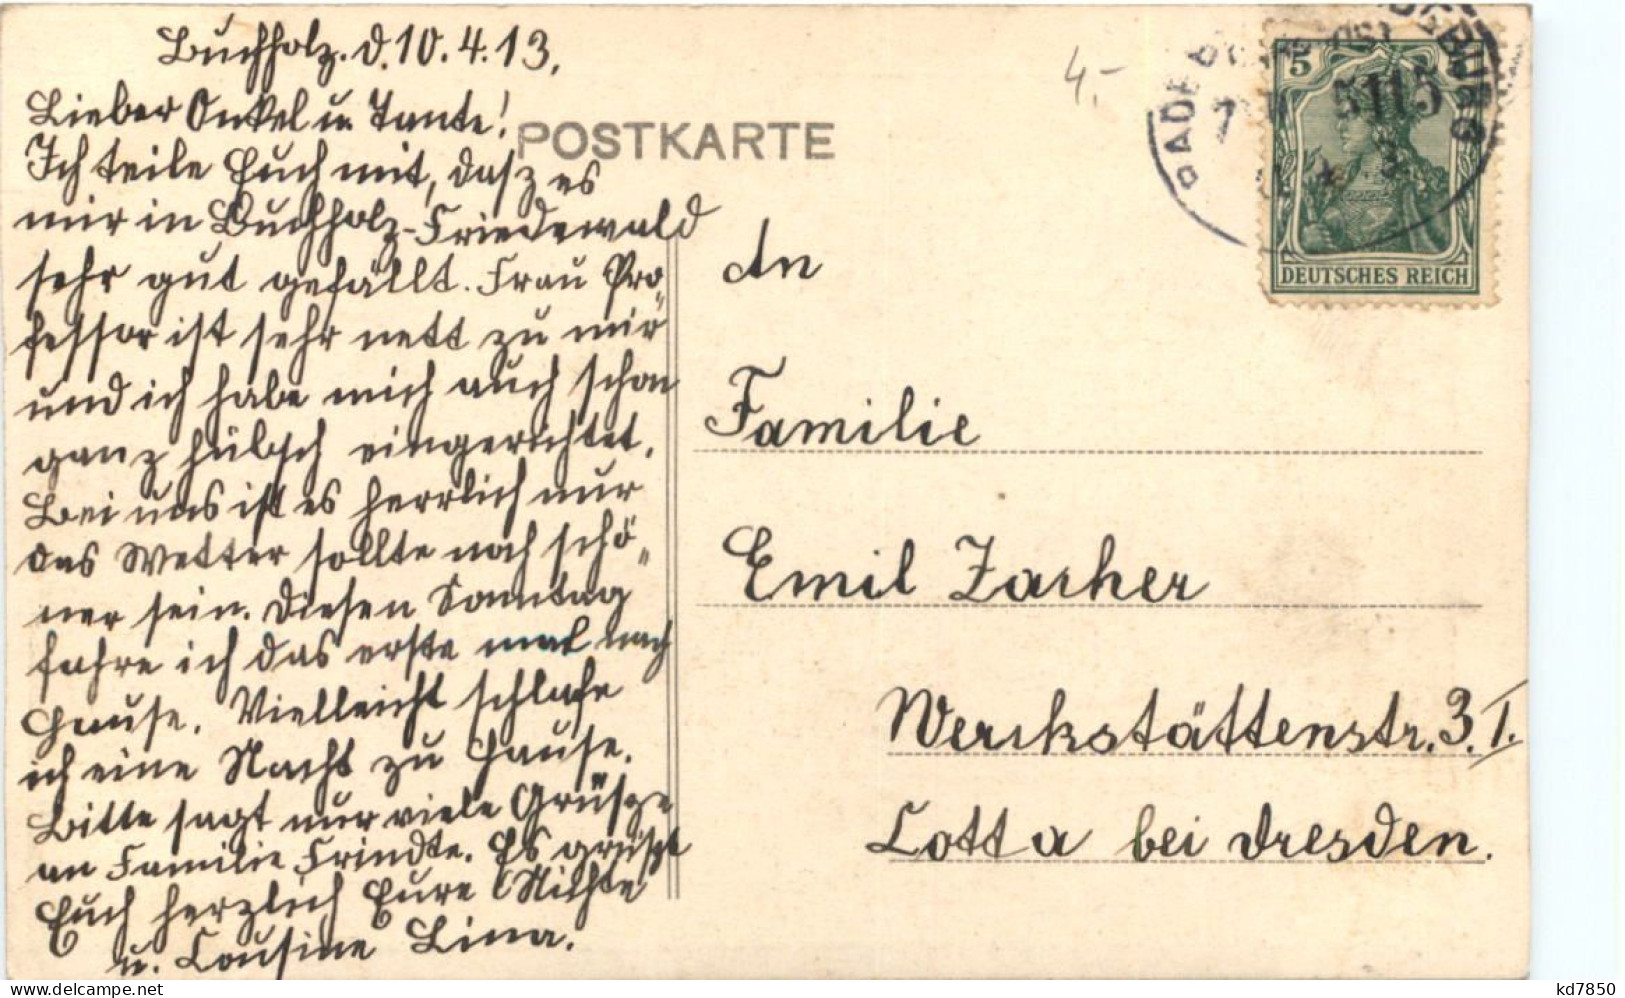 Buchholz. d. 10. 4. 13.
Lieber Onkel u. Tante!
Ich teile Euch mit, dasz es
mir in Buchholz-Friedewald
sehr gut gefällt. Frau Pro„
fessor ist sehr nett zu mir
und ich habe mich auch schon
ganz hübsch eingerichtet.
Bei uns ist es herrlich nur
das Wetter sollte noch schö„
ner sein. Diesen Sonntag
fahre ich das erste mal nach
Hause. Vielleicht schlafe
ich eine Nacht zu Hause.
Bitte sagt nur viele Grüsze
an Familie Frindte. Es grüszt
Euch herzlich Eure Nichte
u. Cousine Lina.
POSTKARTE
4.-
5
5115
DEUTSCHES REICH
An
Familie
Emil Zacher
Werckstättenstr. 3. I.
Cotta bei Dresden.
kd7850